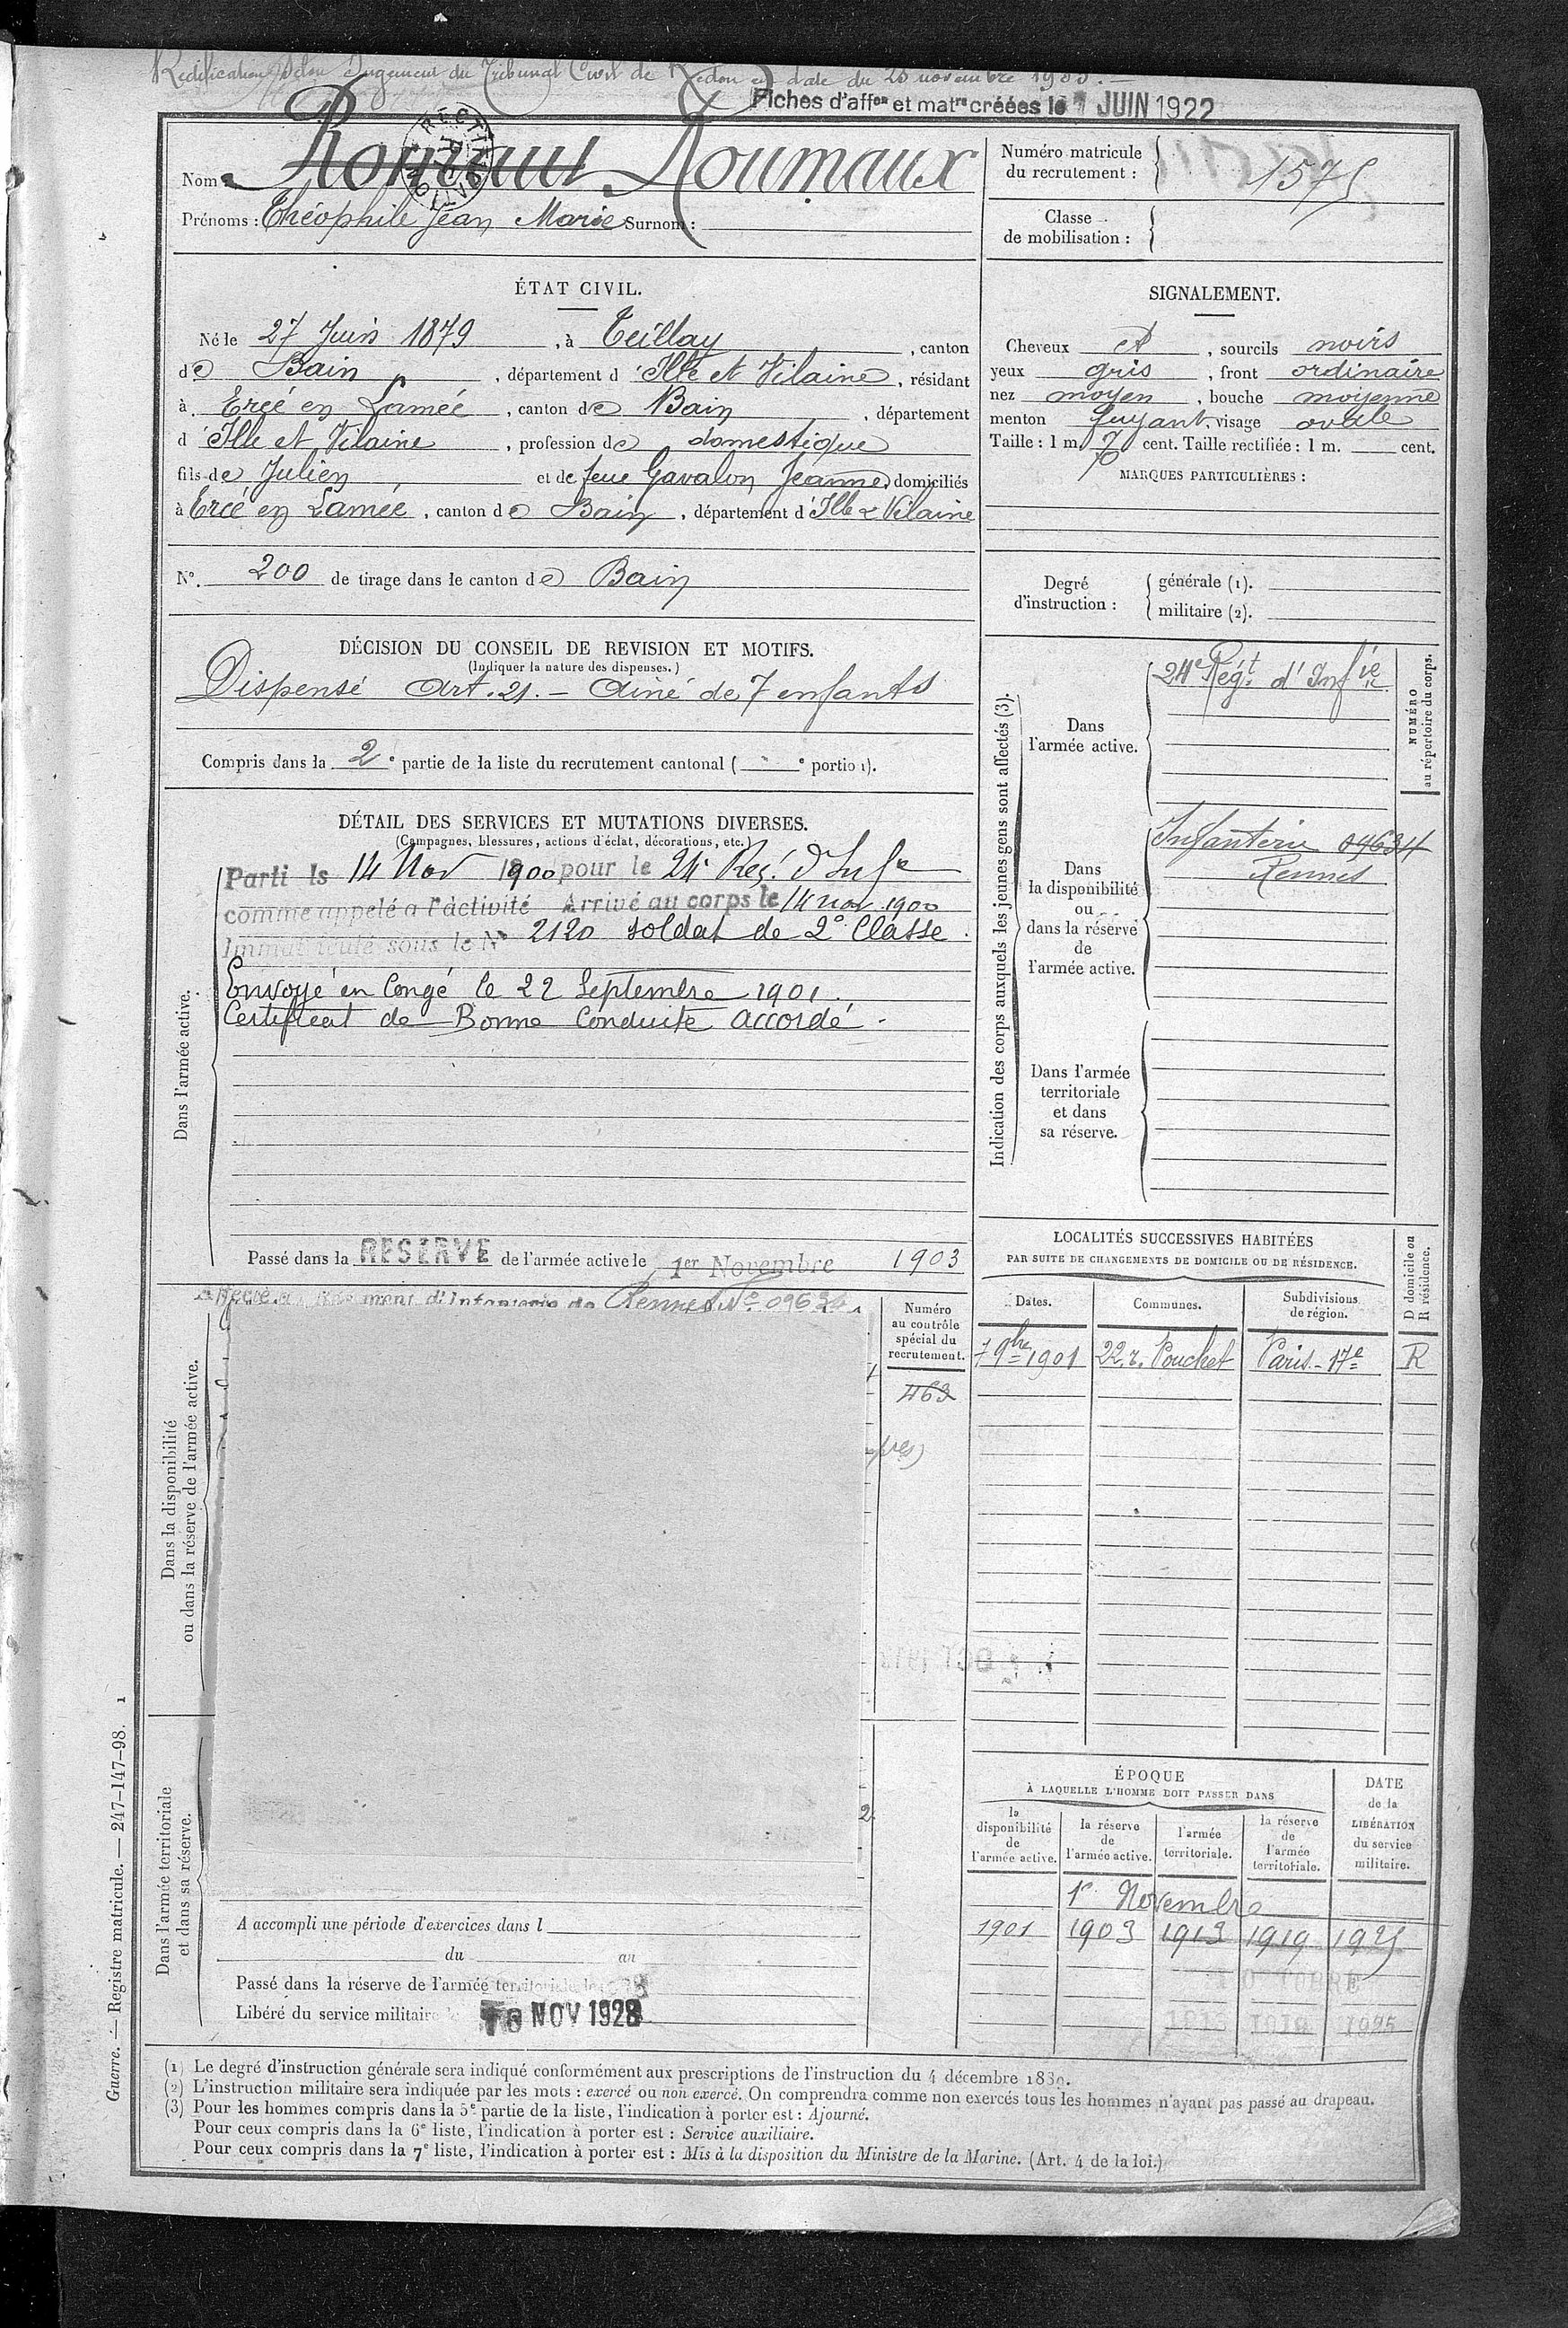 Rectification selon Jugement du Tribunal Civil de Redon en date du 25 novembre
Fiches d'affon et matres créées le 1 JUIN 1922
Nom : Roumaux
Prénoms : Théophile Jean Marie Surnom :
Numéro matricule du recrutement : 1575
Classe de mobilisation :
ÉTAT CIVIL.
Né le 27 Juin 1879, à Teillay, canton
de Bain, département d'Ille et Vilaine, résidant
à Ercé en Lamée, canton de Bain, département
d'Ille et Vilaine, profession de domestique
fils de Julien et de feue Gavalon Jeanne, domiciliés
à Ercé en Lamée, canton de Bain, département d'Ille & Vilaine
N°. 200 de tirage dans le canton de Bain
SIGNALEMENT.
Cheveux et, sourcils noirs
yeux gris, front ordinaire
nez moyen, bouche moyenne
menton fuyant, visage ovale
Taille : 1 m. 70 cent. Taille rectifiée : 1 m. cent.
MARQUES PARTICULIÈRES :
Degré d'instruction :
générale (1).
militaire (2).
DÉCISION DU CONSEIL DE REVISION ET MOTIFS.
(Indiquer la nature des dispenses.)
Dispensé Art. 21. – Ainé de 7 enfants
Compris dans la 2e partie de la liste du recrutement cantonal ( e portion).
DÉTAIL DES SERVICES ET MUTATIONS DIVERSES.
(Campagnes, blessures, actions d'éclat, décorations, etc.)
Dans l'armée active.
Parti le 14 Nov 1900 pour le 24e Reg. d'Infie
comme appelé à l'activité Arrivé au corps le 14 nov. 1900
Immatriculé sous le N° 2120 soldat de 2e Classe.
Envoyé en Congé le 22 Septembre 1901.
Certificat de Bonne Conduite accordé -
Passé dans la RESERVE de l'armée active le 1er Novembre 1903
Indication des corps auxquels les jeunes gens sont affectés (3).
NUMÉRO au répertoire du corps.
Dans l'armée active.
24e Régt d'Infie
Dans la disponibilité ou dans la réserve de l'armée active.
Infanterie 09634
Rennes
Dans l'armée territoriale et dans sa réserve.
LOCALITÉS SUCCESSIVES HABITÉES
PAR SUITE DE CHANGEMENTS DE DOMICILE OU DE RÉSIDENCE.
D domicile ou R résidence.
Dates. Communes. Subdivisions de région.
7 9bre 1901 22 r. Pouchet Paris - 17e R
Dans la disponibilité ou dans la réserve de l'armée active.
Régiment d'Infanterie de Rennes N° 09634
Numéro au contrôle spécial du recrutement.
463
Dans l'armée territoriale et dans sa réserve.
A accompli une période d'exercices dans l
du au
Passé dans la réserve de l'armée territoriale le
Libéré du service militaire le 10 NOV 1928
ÉPOQUE
À LAQUELLE L'HOMME DOIT PASSER DANS
DATE de la LIBÉRATION du service militaire.
la disponibilité de l'armée active. la réserve de l'armée active. l'armée territoriale. la réserve de l'armée territoriale.
1er Novembre
1901 1903 1913 1919 1925
Guerre. — Registre matricule. — 247-147-98. 1
(1) Le degré d'instruction générale sera indiqué conformément aux prescriptions de l'instruction du 4 décembre 1889.
(2) L'instruction militaire sera indiquée par les mots : exercé ou non exercé. On comprendra comme non exercés tous les hommes n'ayant pas passé au drapeau.
(3) Pour les hommes compris dans la 5e partie de la liste, l'indication à porter est : Ajourné.
Pour ceux compris dans la 6e liste, l'indication à porter est : Service auxiliaire.
Pour ceux compris dans la 7e liste, l'indication à porter est : Mis à la disposition du Ministre de la Marine. (Art. 4 de la loi.)